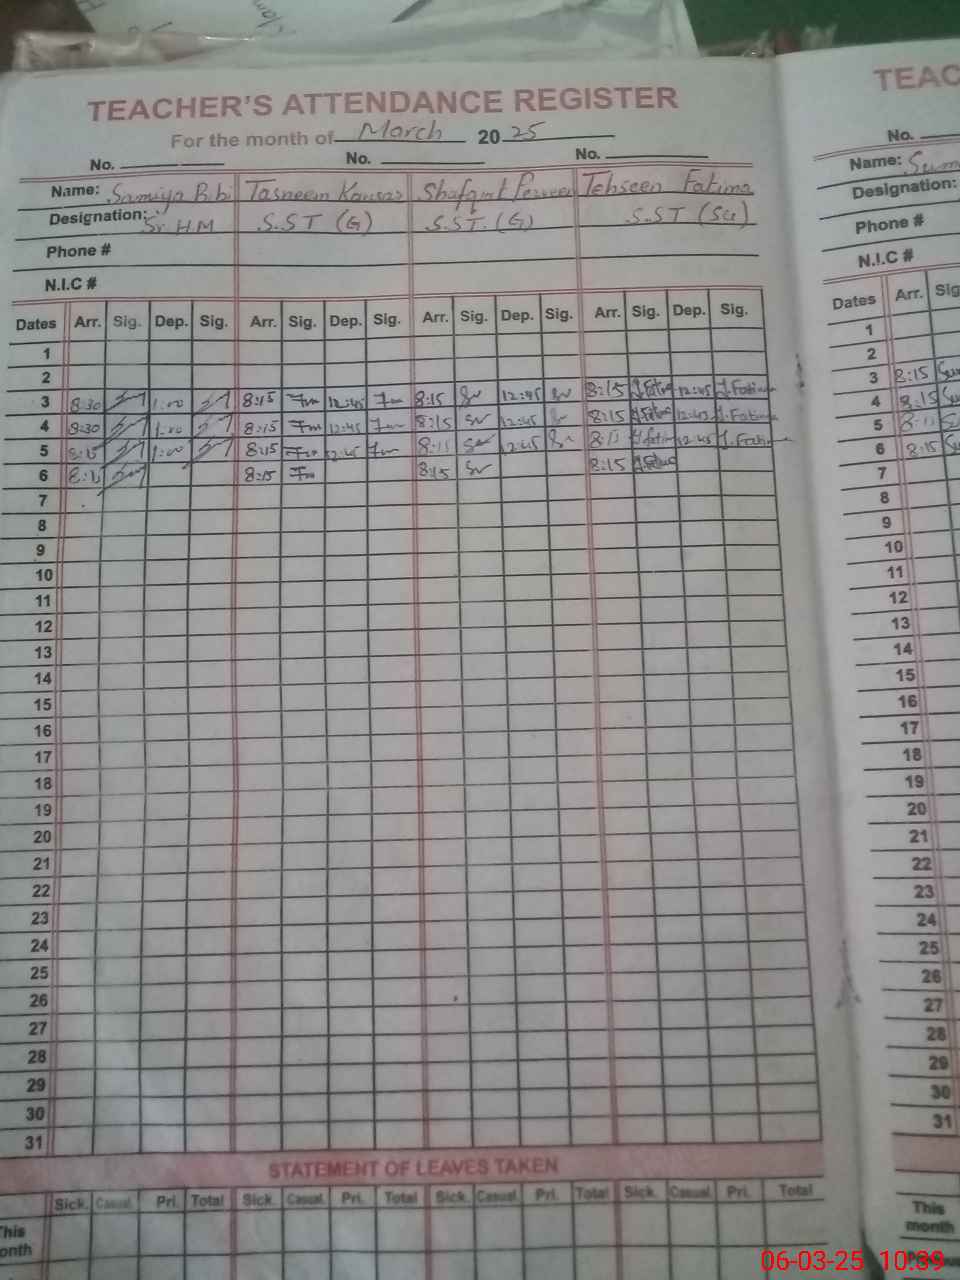 TEACHER'S ATTENDANCE REGISTER
For the month of March 2025
No. No. No.
Name: Samiya Bibi Tasneem Kausar Shafqat Perveen Tehseen Fatima
Designation: Sr. H.M S.ST (G) S.ST. (G) S.ST (Sci)
Phone #
N.I.C #
Dates Arr. Sig. Dep. Sig. Arr. Sig. Dep. Sig. Arr. Sig. Dep. Sig. Arr. Sig. Dep. Sig.
1
2
3 8:30 1:00 8:15 12:45 8:15 12:45 8:15 12:45 T.Fatima
4 8:30 1:00 8:15 12:45 8:15 12:45 8:15 12:45 T.Fatima
5 8:15 1:00 8:15 12:45 8:15 12:45 8:15 12:45 T.Fatima
6 8:15 8:15 8:15
7
8
9
10
11
12
13
14
15
16
17
18
19
20
21
22
23
24
25
26
27
28
29
30
31
STATEMENT OF LEAVES TAKEN
Sick. Casual. Pri. Total Sick. Casual. Pri. Total Sick. Casual. Pri. Total Sick. Casual. Pri. Total
This
month
TEAC
No.
Name:
Designation:
Phone #
N.I.C #
Dates Arr. Sig
1
2
3 8:15
4 8:15
5 8:15
6 8:15
7
8
9
10
11
12
13
14
15
16
17
18
19
20
21
22
23
24
25
26
27
28
29
30
31
This
month
06-03-25 10:39